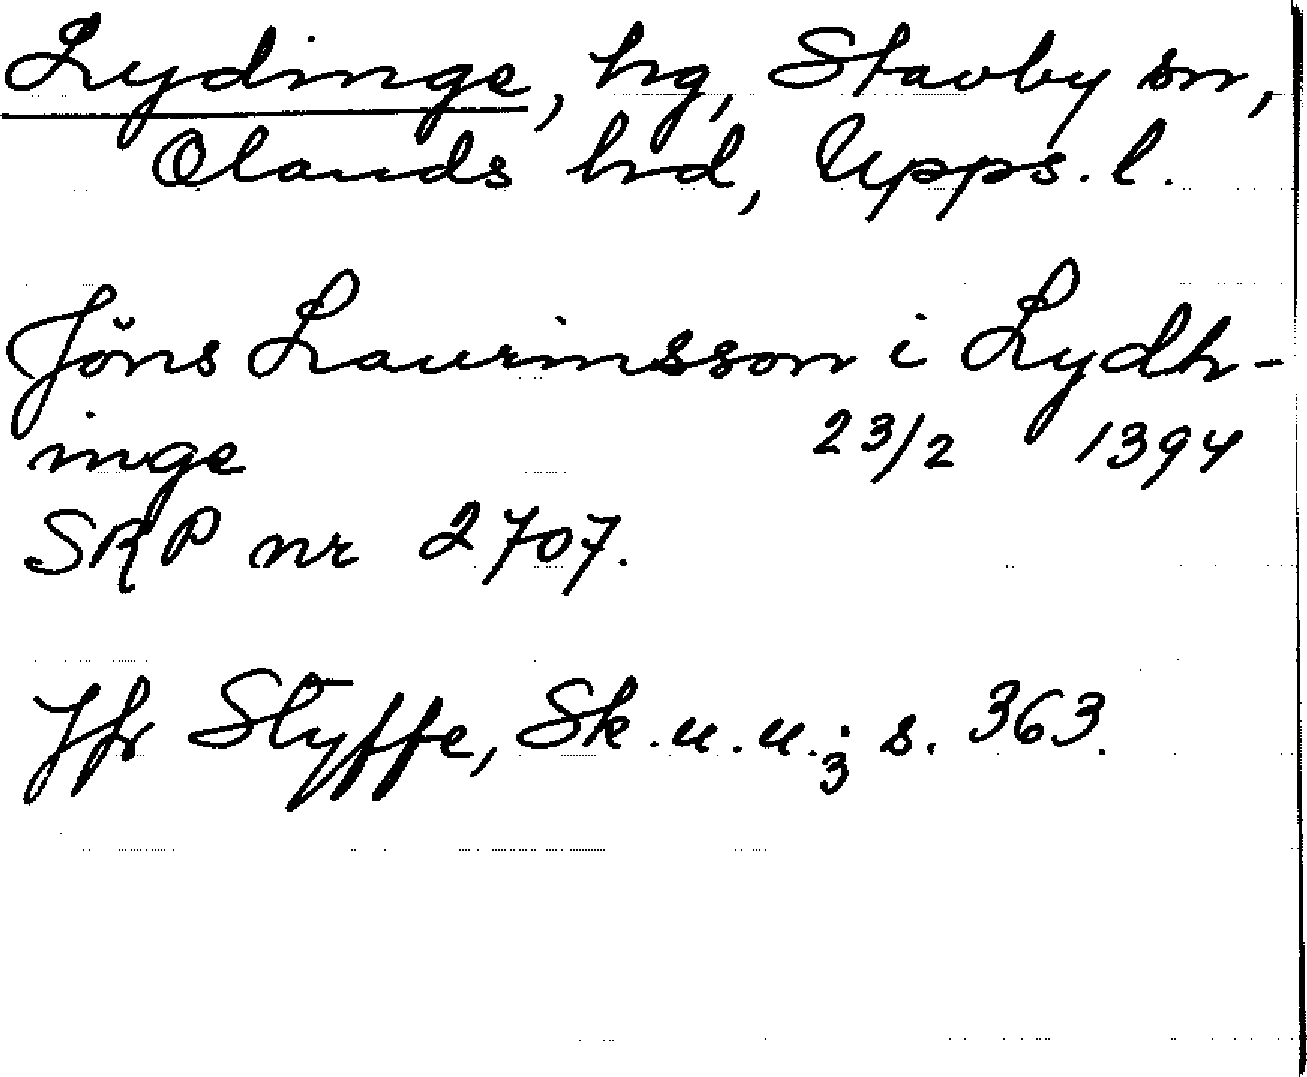 Lydinge, hg, Stavby sn,
Olands hd, Upps. l.
Jöns Laurinsson i Lydh-
inge 23/2 1394
SRP nr 2707.
Jfr Styffe, Sk. u. u.3; s. 363.